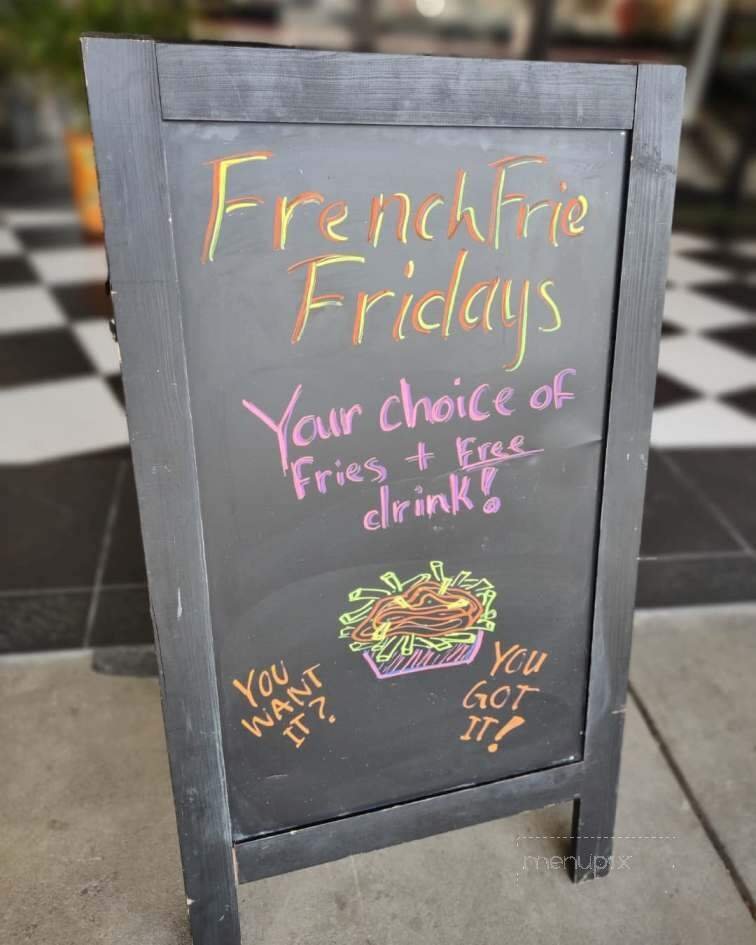 FrenchFrie
Fridays
Your choice of
Fries + Free
drink!
YOU
WANT
IT?
YOU
GOT
IT!
menupix